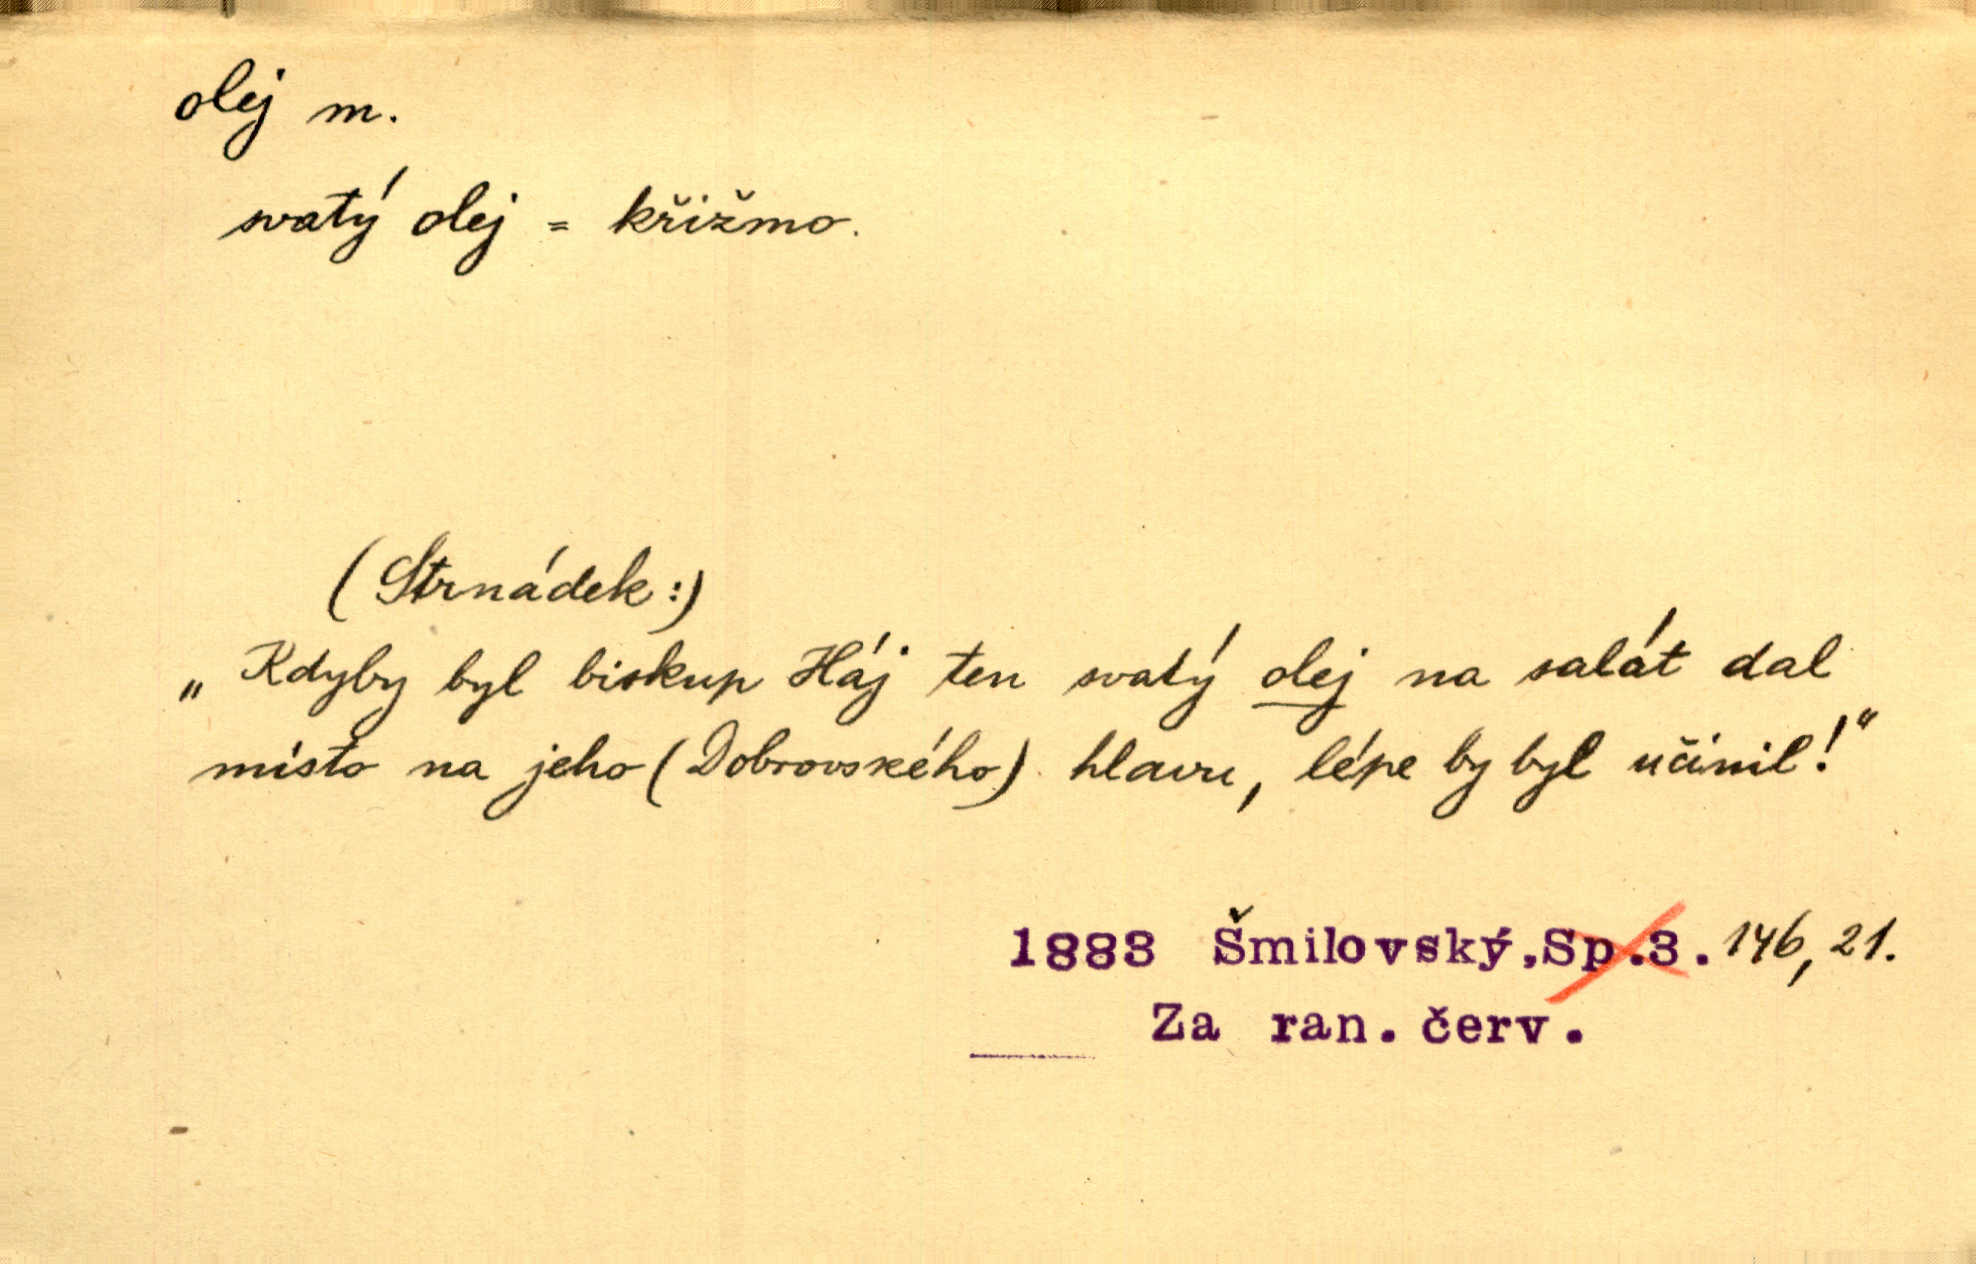 olej m.
svatý olej = křižmo.
(Strnádek:)
„Kdyby byl biskup Háj ten svatý olej na salát dal
místo na jeho (Dobrovského) hlavu, lépe by byl učinil!“
1883 Šmilovský,Sp.3. 146, 21.
Za ran. červ.